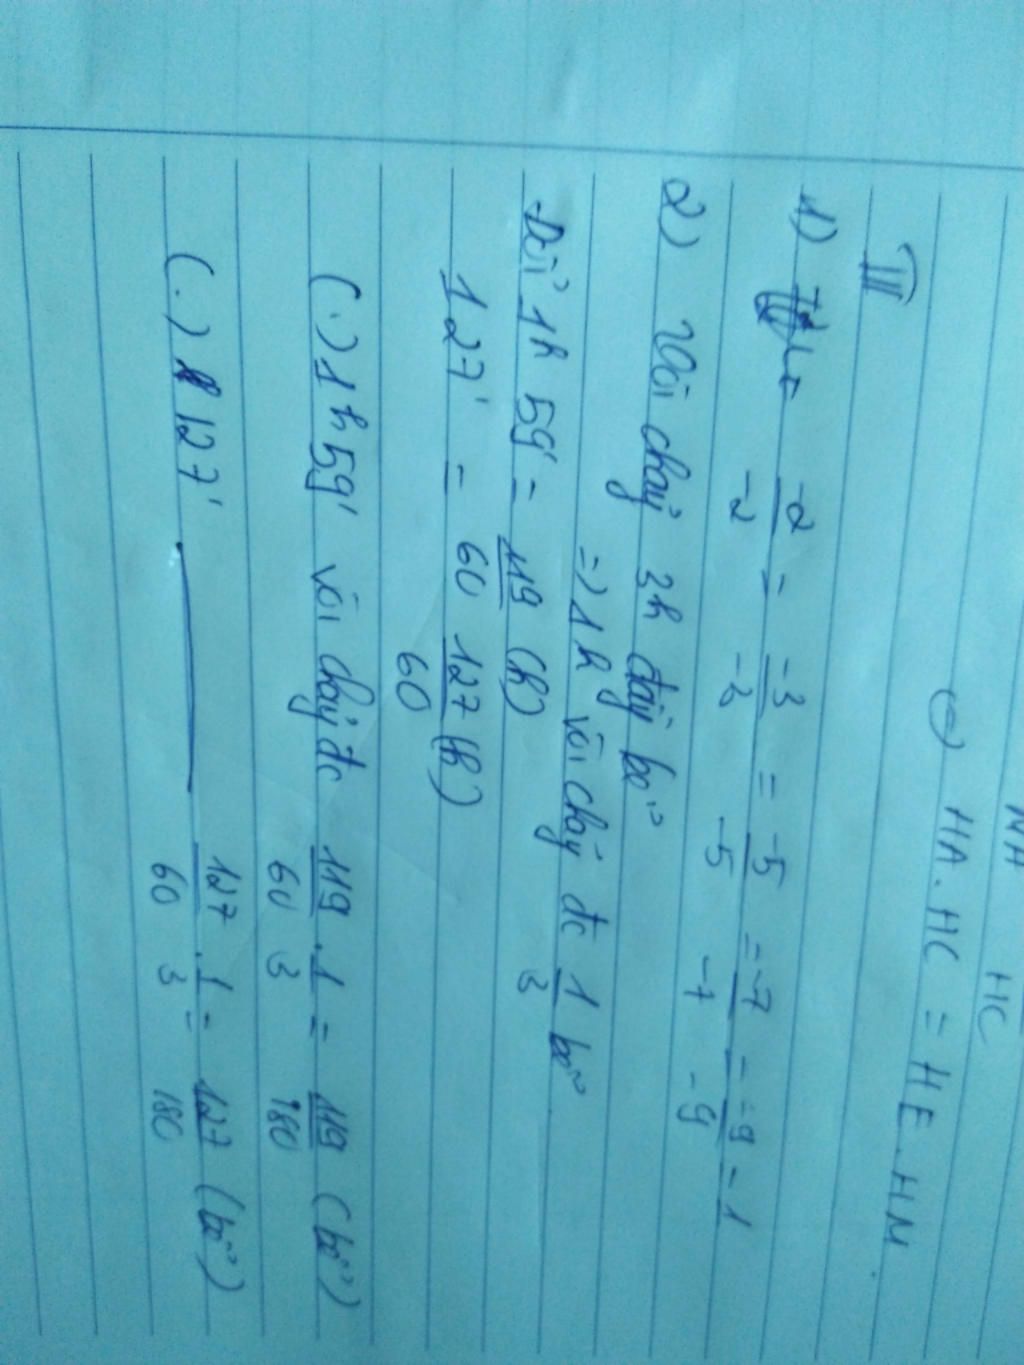 NA HC
(=) HA.HC = HE.HM.
III
1) -2/-2 = -3/-3 = -5/-5 = -7/-7 = -9/-9 = 1
2) Vòi chảy 3h đầy bể
=> 1h vòi chảy đc 1/3 bể
Đổi 1h 59' = 119/60 (h)
127' = 127/60 (h)
(.) 1h59' vòi chảy đc 119/60 . 1/3 = 119/180 (bể)
(.) 127' ——— 127/60 . 1/3 = 127/180 (bể)